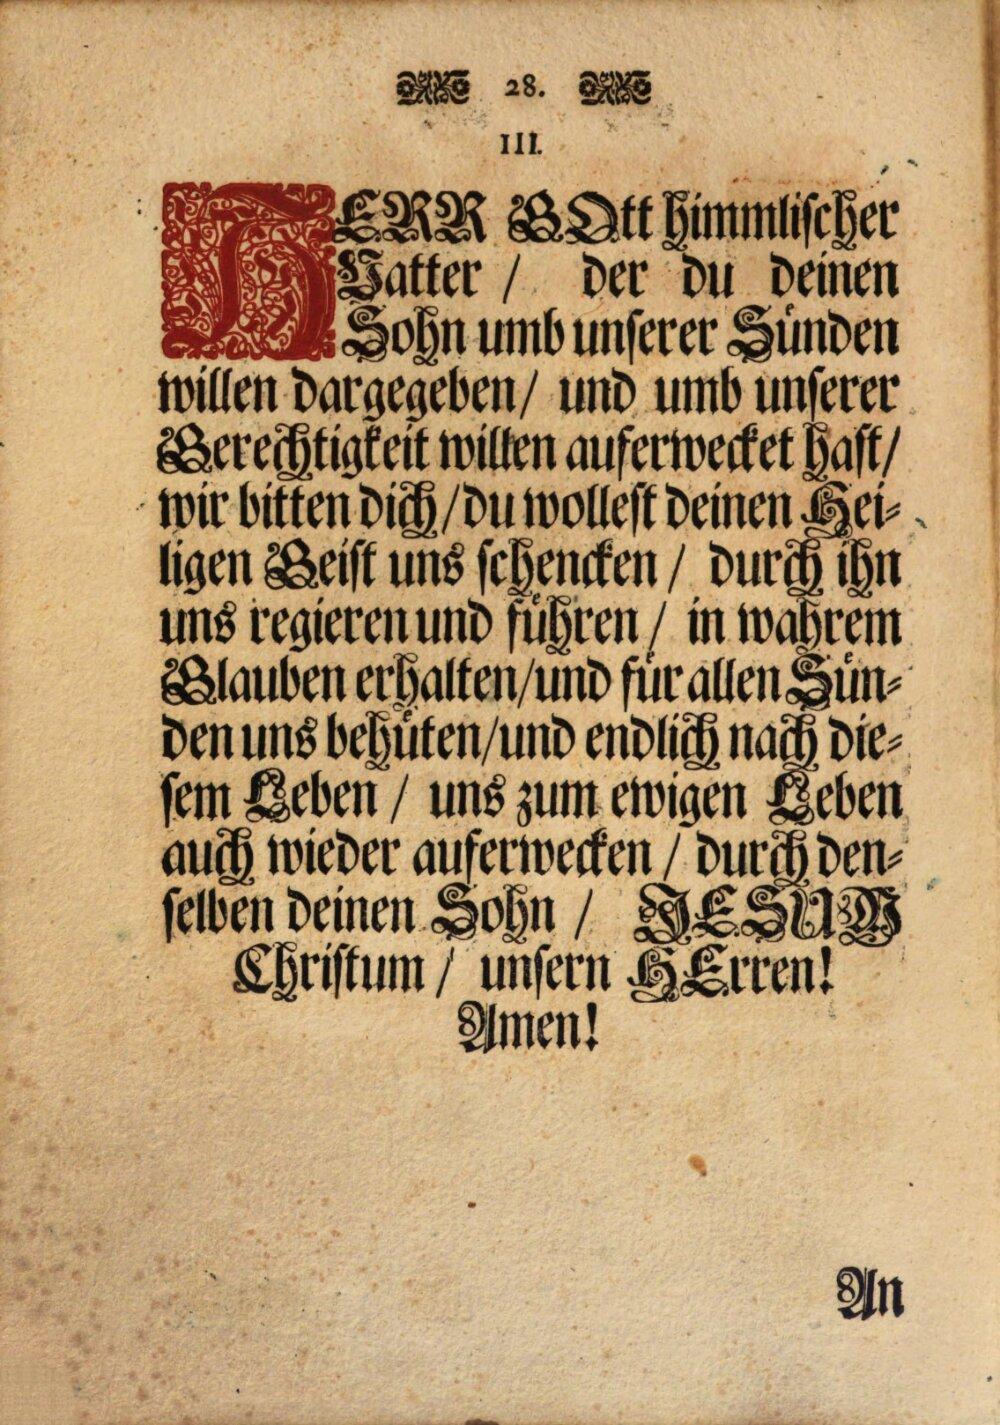 28.
III.
HERR GOtt himmlischer
Vatter / der du deinen
Sohn umb unserer Sünden
willen dargegeben / und umb unserer
Gerechtigkeit willen auferwecket hast /
wir bitten dich / du wollest deinen Hei-
ligen Geist uns schencken / durch ihn
uns regieren und führen / in wahrem
Glauben erhalten / und für allen Sün-
den uns behüten / und endlich nach die-
sem Leben / uns zum ewigen Leben
auch wieder auferwecken / durch den-
selben deinen Sohn / JESUM
Christum / unsern HErren!
Amen!
An